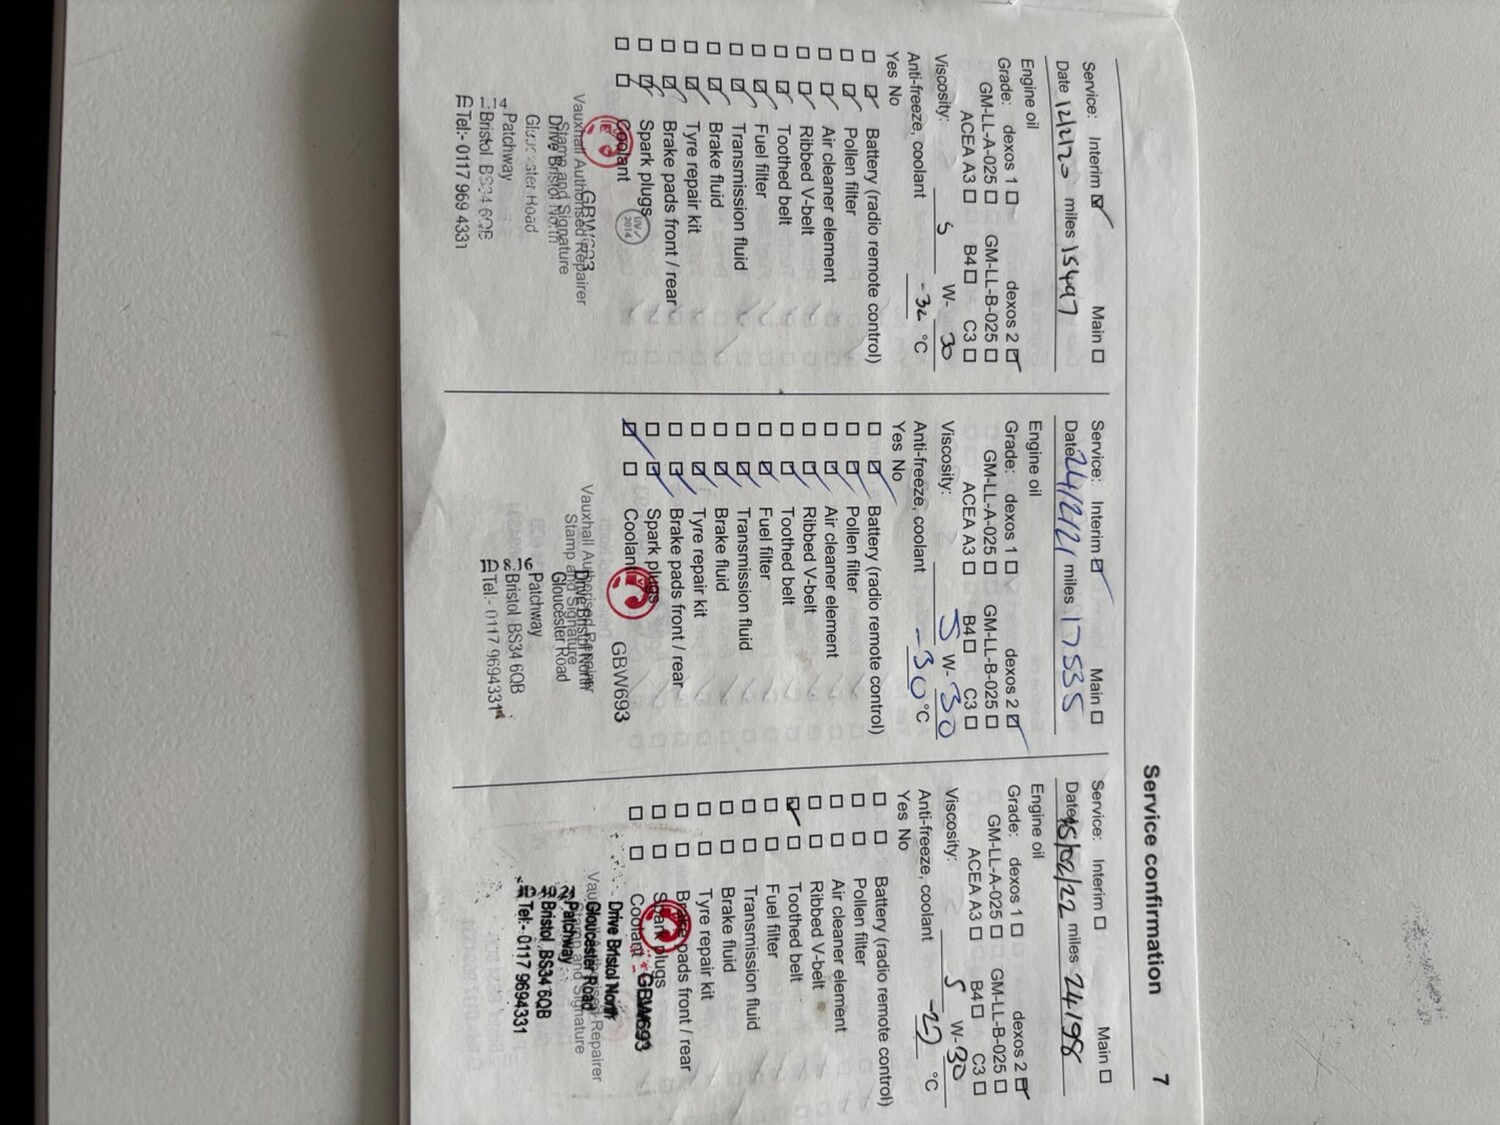 Service confirmation 7
Service: Interim Main
Date 12/2/20 miles 15497
Engine oil
Grade: dexos 1 dexos 2
GM-LL-A-025 GM-LL-B-025
ACEA A3 B4 C3
Viscosity: 5 W- 30
Anti-freeze, coolant -32 °C
Yes No
Battery (radio remote control)
Pollen filter
Air cleaner element
Ribbed V-belt
Toothed belt
Fuel filter
Transmission fluid
Brake fluid
Tyre repair kit
Brake pads front / rear
Spark plugs
Coolant
GBW693
Vauxhall Authorised Repairer
Stamp and Signature
Drive Bristol North
Gloucester Road
Patchway
Bristol BS34 6QB
Tel:- 0117 969 4331
Service: Interim Main
Date 24/2/21 miles 17535
Engine oil
Grade: dexos 1 dexos 2
GM-LL-A-025 GM-LL-B-025
ACEA A3 B4 C3
Viscosity: 5 W- 30
Anti-freeze, coolant -30 °C
Yes No
Battery (radio remote control)
Pollen filter
Air cleaner element
Ribbed V-belt
Toothed belt
Fuel filter
Transmission fluid
Brake fluid
Tyre repair kit
Brake pads front / rear
Spark plugs
Coolant
GBW693
Vauxhall Authorised Repairer
Stamp and Signature
Drive Bristol North
Gloucester Road
Patchway
Bristol BS34 6QB
Tel:- 0117 9694331
Service: Interim Main
Date 15/02/22 miles 24198
Engine oil
Grade: dexos 1 dexos 2
GM-LL-A-025 GM-LL-B-025
ACEA A3 B4 C3
Viscosity: 5 W- 30
Anti-freeze, coolant -27 °C
Yes No
Battery (radio remote control)
Pollen filter
Air cleaner element
Ribbed V-belt
Toothed belt
Fuel filter
Transmission fluid
Brake fluid
Tyre repair kit
Brake pads front / rear
Spark plugs
Coolant
GBW693
Drive Bristol North
Vauxhall Authorised Repairer
Gloucester Road
Stamp and Signature
Patchway
Bristol BS34 6QB
Tel:- 0117 9694331